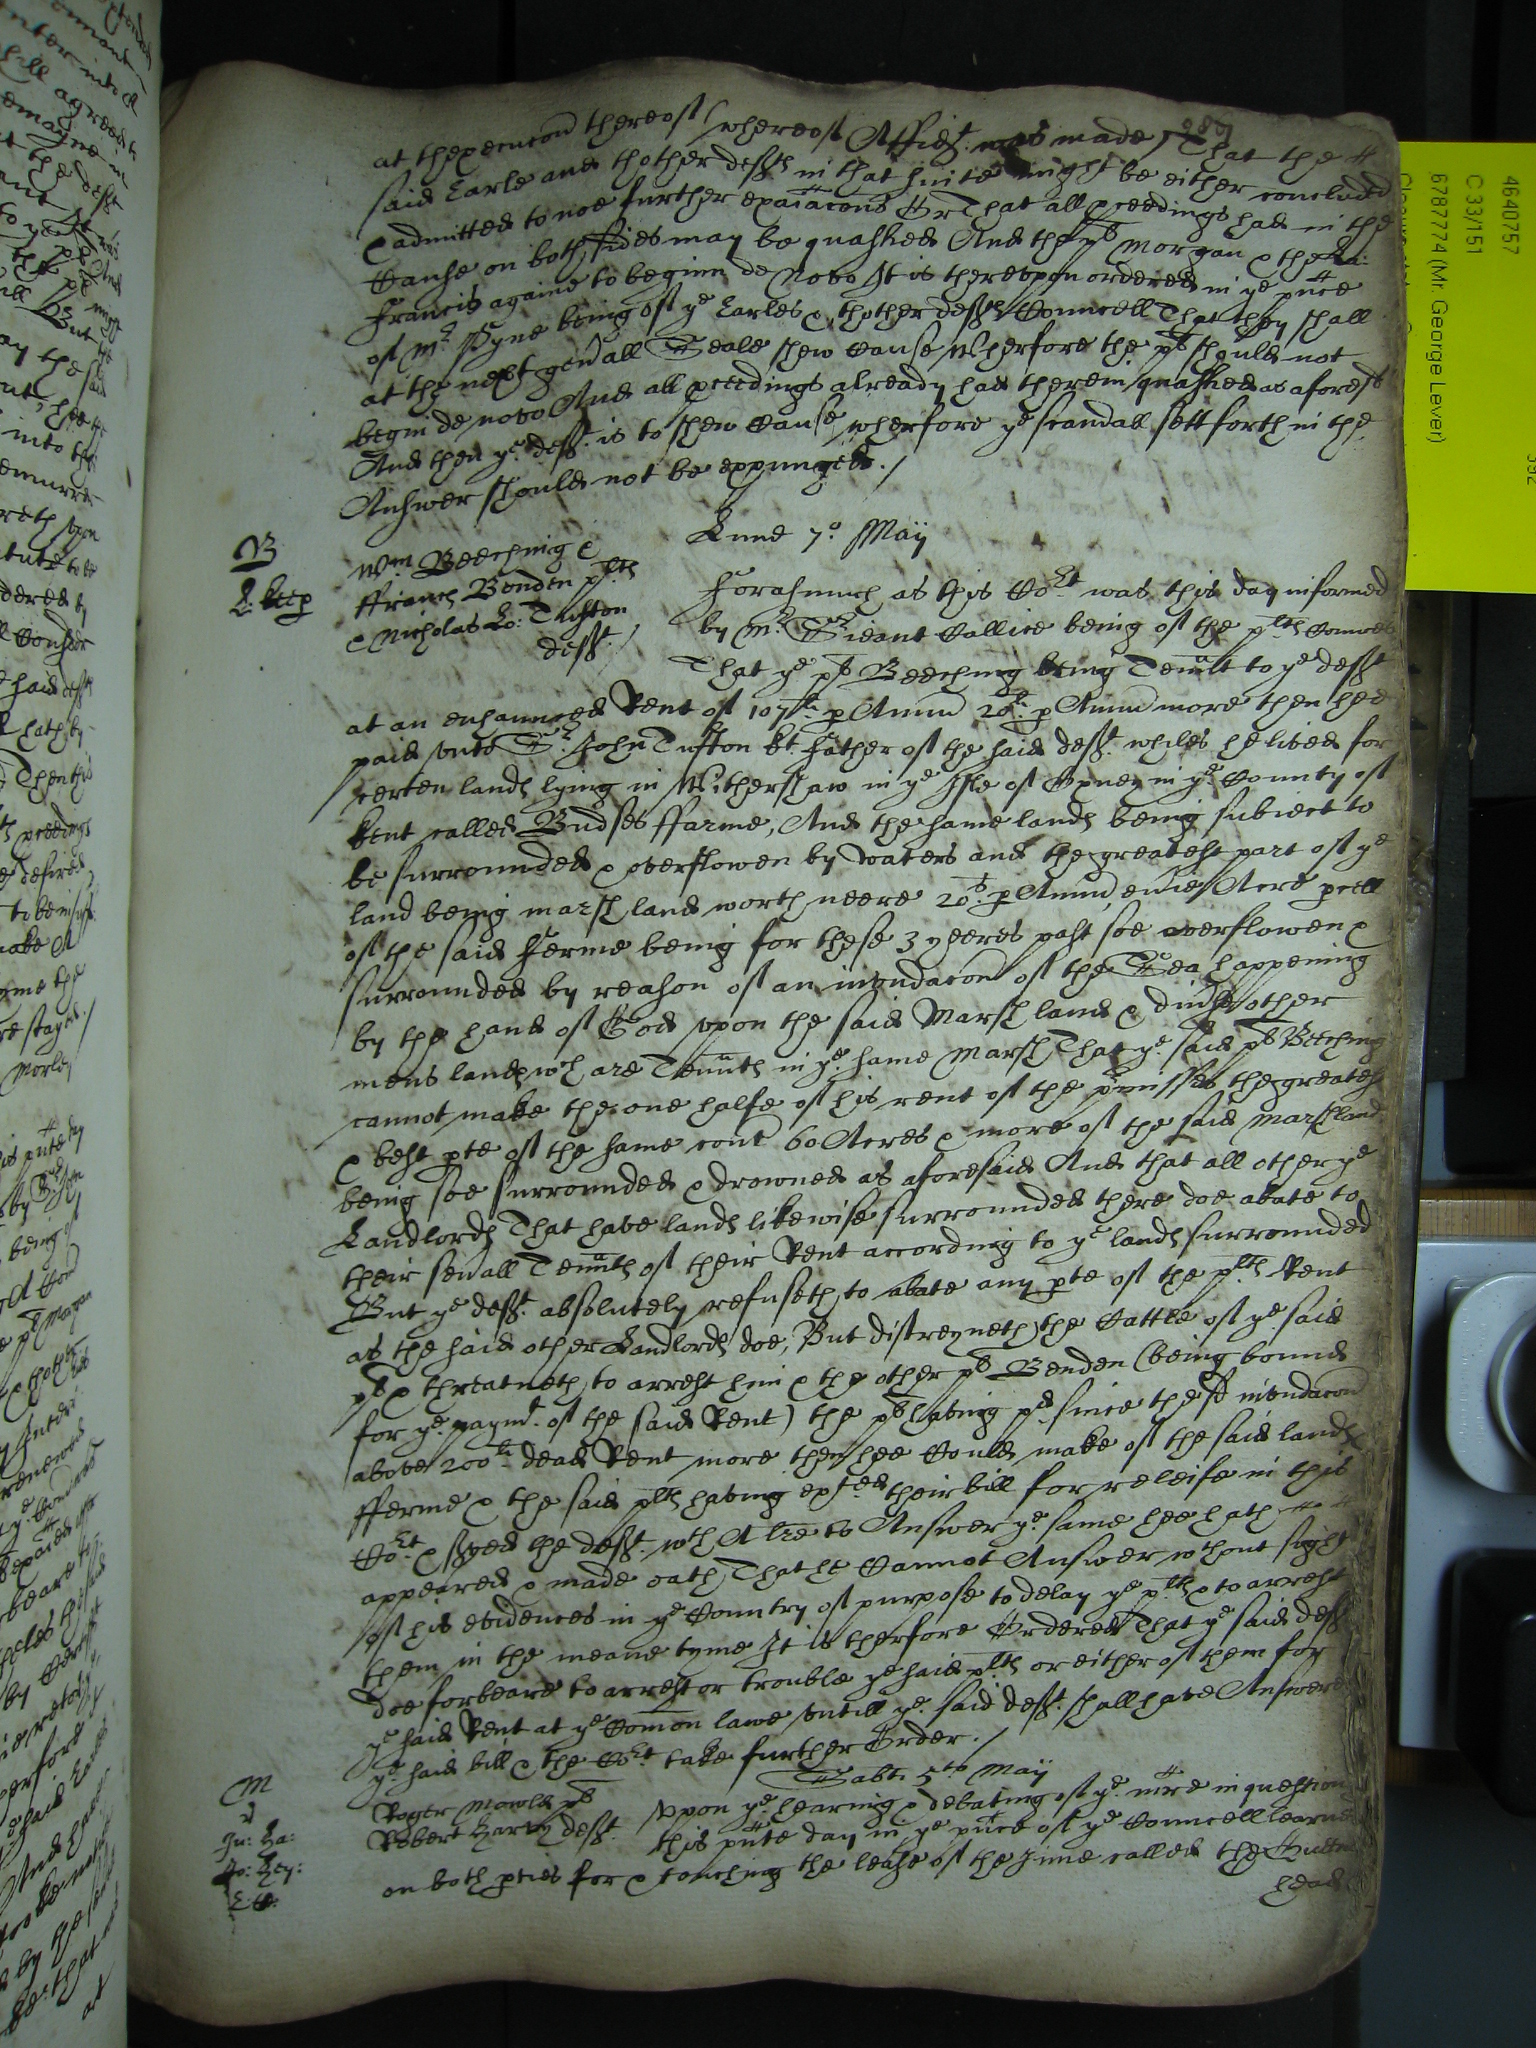 at thexecucōn thereof (whereof Affidt. was made) That the
said Earle and thother defts in that suite might be either concluded
& admitted to noe further exaiacons Or That all pceedings had in the
Cause on both sides may be quashed And the pl Morgan & the La:
Francis againe to beginn de novo It is thereupon ordered in ye pñce
of Mr. Pyne being of ye Earles & thother defts Councell That they shall
at the next gen̄all Seale shew Cause Wherfore the pl should not
begin de novo And all pceedings already had therein quashed as aforesd
And then ye deft. is to shew Cause wherfore ye scandall sett forth in the
Answer should not be expunged./
Lune 7o. Maij
B
L: keep
Wm Beeching &
ffranc Benden plts
& Nicholas Lo: Tufton
deft./
Forasmuch as this Cort was this day informed
by Mr. Sr̄ieant Callice being of the plts Councell
That ye pl Beeching being Ten̄nt to ye deft
at an enhaunced Rent of 107li p Annu 20li. p Annu more then hee
paid unto Sr. John Tufton kt. Father of the said deft. whiles he lived for
certen lands lying in Withersham in ye Isle of Oxney in ye County of
Kent called Budses ffarme, And the same lands being subiect to
be surrounded & overflowen by waters and the greatest part of ye
land being marsh land worth neere 20s. p Annu evie Acre pcell
of the said Ferme being for these 3 yeeres past soe overflowen &
surrounded by reason of an inundacon of the Sea happening
by the hand of God upon the said Marsh land & divse other
mens lands wch are Ten̄nts in ye same Marsh That ye said pl Beeching
cannot make the one halfe of his rent of the p̄misses the greatest
& best pte of the same cont 60 Acres & more of the said marshland
being soe surrounded & drowned as aforesaid And that all other ye
Landlords That have lands likewise surrounded there doe abate to
their sev̄all Ten̄nts of their Rent according to ye lands surrounded
But ye deft. absolutely refuseth to abate any pte of the plts Rent
as the said other Landlords doe, But distreyneth the Cattle of ye said
pl & threatneth to arrest him & the other pl Benden (being bound
for ye paymt. of the said Rent) the pl having pd since these inundacon
above 200li. dead Rent more then hee Could make of the said lands
fferme & the said plts having exhted their bill for releife in this
Cort. & sved the deft. wth A lre to Answer ye same hee hath
appeared & made oath That he Cannot Answer wthout sight
of his evidences in ye Country of purpose to delay ye plts & to arrest
them in the meane tyme It is therfore Ordered That ye said deft
doe forbeare to arrest or trouble ye said plts or either of them for
ye said Rent at ye Com̄on lawe untill ye said deft. shall have Answered
ye said bill & the Cort take further Order./
Sabti 5to Maij
M
Jn: Ha:
Roger Mowls pl
Robert Harvy deft.
Uppon ye hearing & debating of ye mre in question
this pñte day in ye pñce of ye Councell learned
on both pties for & touching the lease of the
called the
head